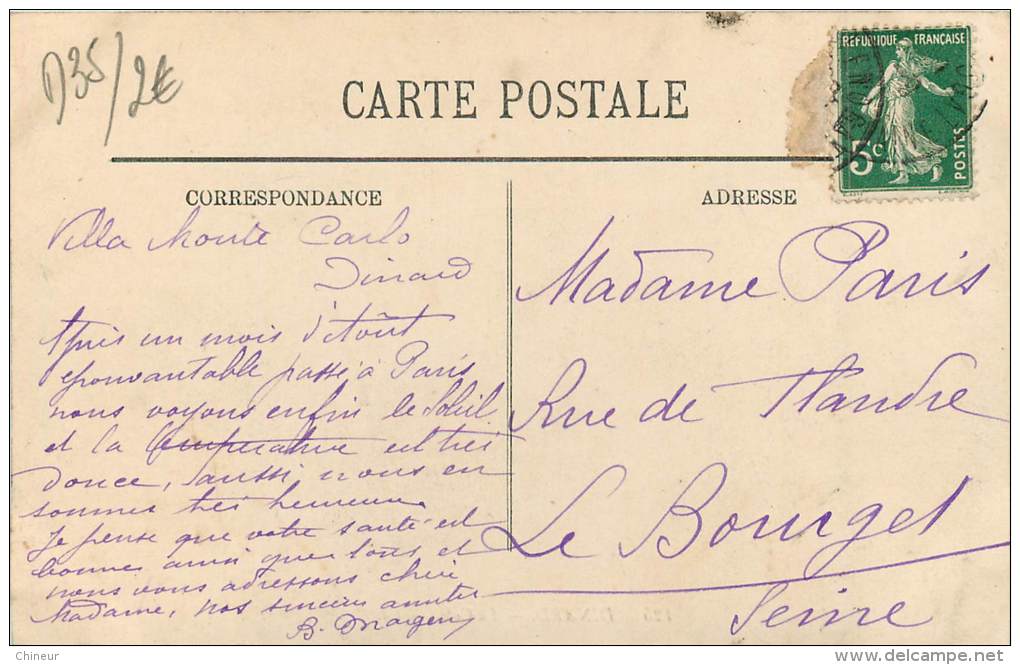 D35/2€
CARTE POSTALE
REPUBLIQUE FRANÇAISE
5c
POSTES
CORRESPONDANCE
ADRESSE
Villa Monte Carlo
Dinard
Après un mois d'Août
épouvantable passé à Paris
nous voyons enfin le Soleil
et la température est très
douce, aussi nous en
sommes très heureux
Je pense que votre santé est
bonne ainsi que tous et
nous vous adressons chère
Madame, nos sincères amitiés
Madame Paris
Rue de Flandre
Le Bourget
Seine
Chineur
Reproduction interdite - www.delcampe.net